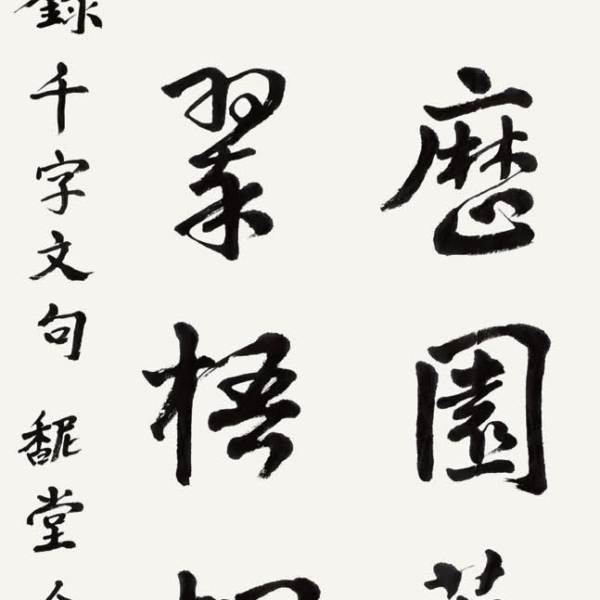 歷園
翠梧
錄千字文句 馜堂